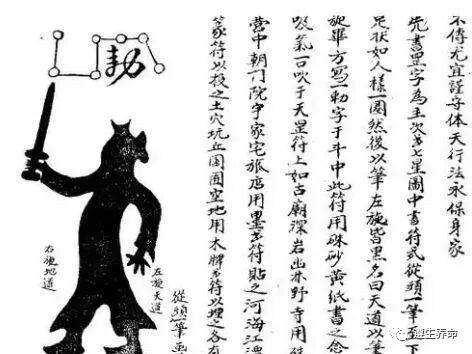 不傳尤宜謹守体天行法永保身家
先書罡字為主次書七星圖中書符式從頭一筆下
足狀如人樣一圈然後以筆左旋皆黑名曰天道以筆
旋畢方寫一勅字于斗中此符用硃砂黄紙書之念
吸氣一口吹于天罡符上如古廟深岩幽林野寺用硃
營中朝門院宇家宅旅店用墨書符貼之河海江
篆符以投之土穴坑丘園囿空地用木牌書符以埋之各有
勅
從頭一筆
左旋天道
右旋地道
遵生养命